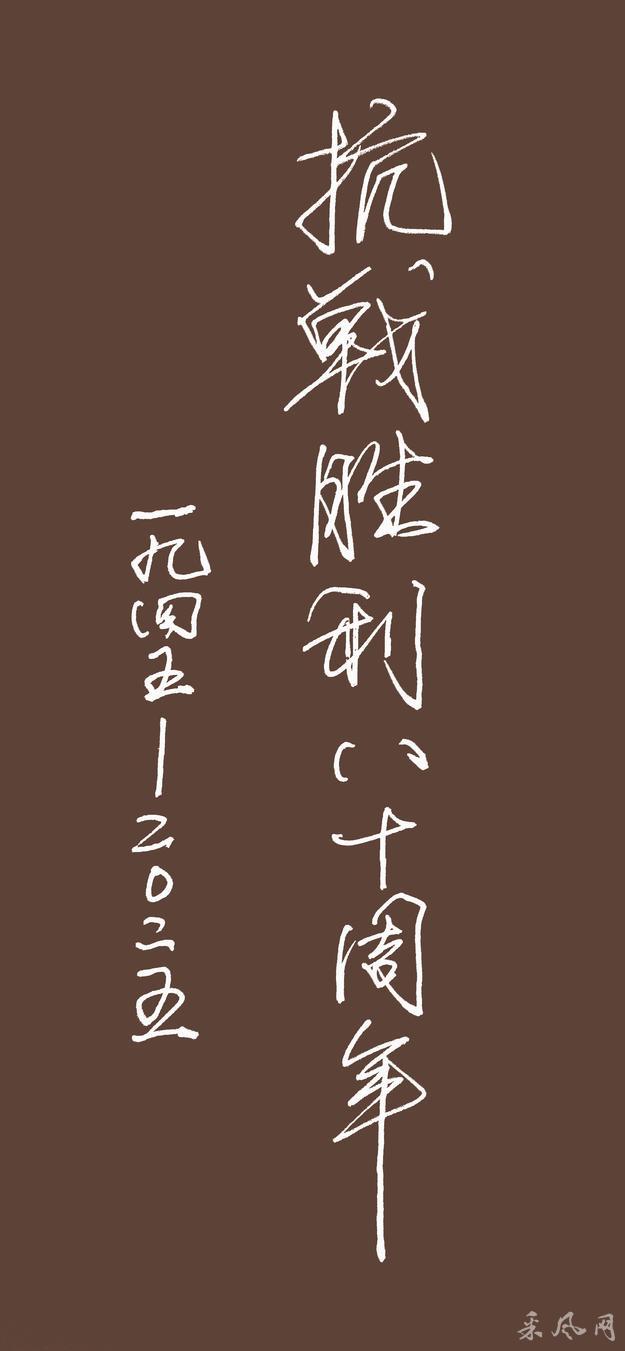 抗战胜利八十周年
一九四五—二〇二五
采风网